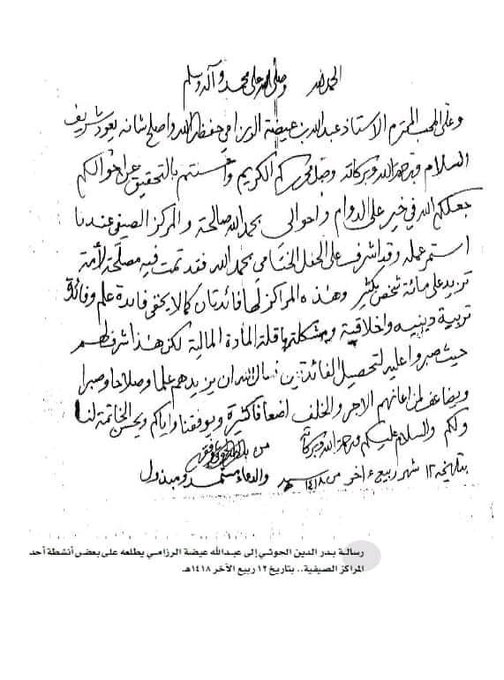 الحمد لله وصلى الله على محمد وآله وسلم
وعلى المحب المحترم الاستاذ عبدالله بن عيضة الرزامي حفظه الله واصلح شانه يعود شريف
السلام ورحمة الله وبركاته وصل محرركم الكريم بالتحقيق عن احوالكم
جعلكم الله في خير على الدوام واحوالي بحمد الله صالحة والمركز الصيفي عندنا
استمر عمله وقد اشرف على الحفل الختامي بحمد الله فقد تمت فيه مصلحة لأمة
تزيد على مائة شخص بكثير وهذه المراكز لها فائدتان كما لا يخفى فائدة علم وفائدة
تربية دينيه واخلاقية ومشكلتها قلة المادة المالية لكن هذا شرف لهم
حيث صبروا عليه لتحصيل الفائدتين نسال الله ان يزيدهم علما وصلاحا وصبرا
ويضاعف لمن اعانهم الاجر والخلف اضعافا كثيرة ويوفقنا واياكم ويحسن الخاتمة لنا
ولكم والسلام عليكم ورحمة الله وبركاته من
بتاريخه ١٢ شهر ربيع آخر من ١٤١٨ والدعاء مستمد ومبذول
رسالة بدر الدين الحوثي إلى عبدالله عيضة الرزامي يطلعه على بعض أنشطة أحد
المراكز الصيفية.. بتاريخ ١٢ ربيع الآخر ١٤١٨هـ